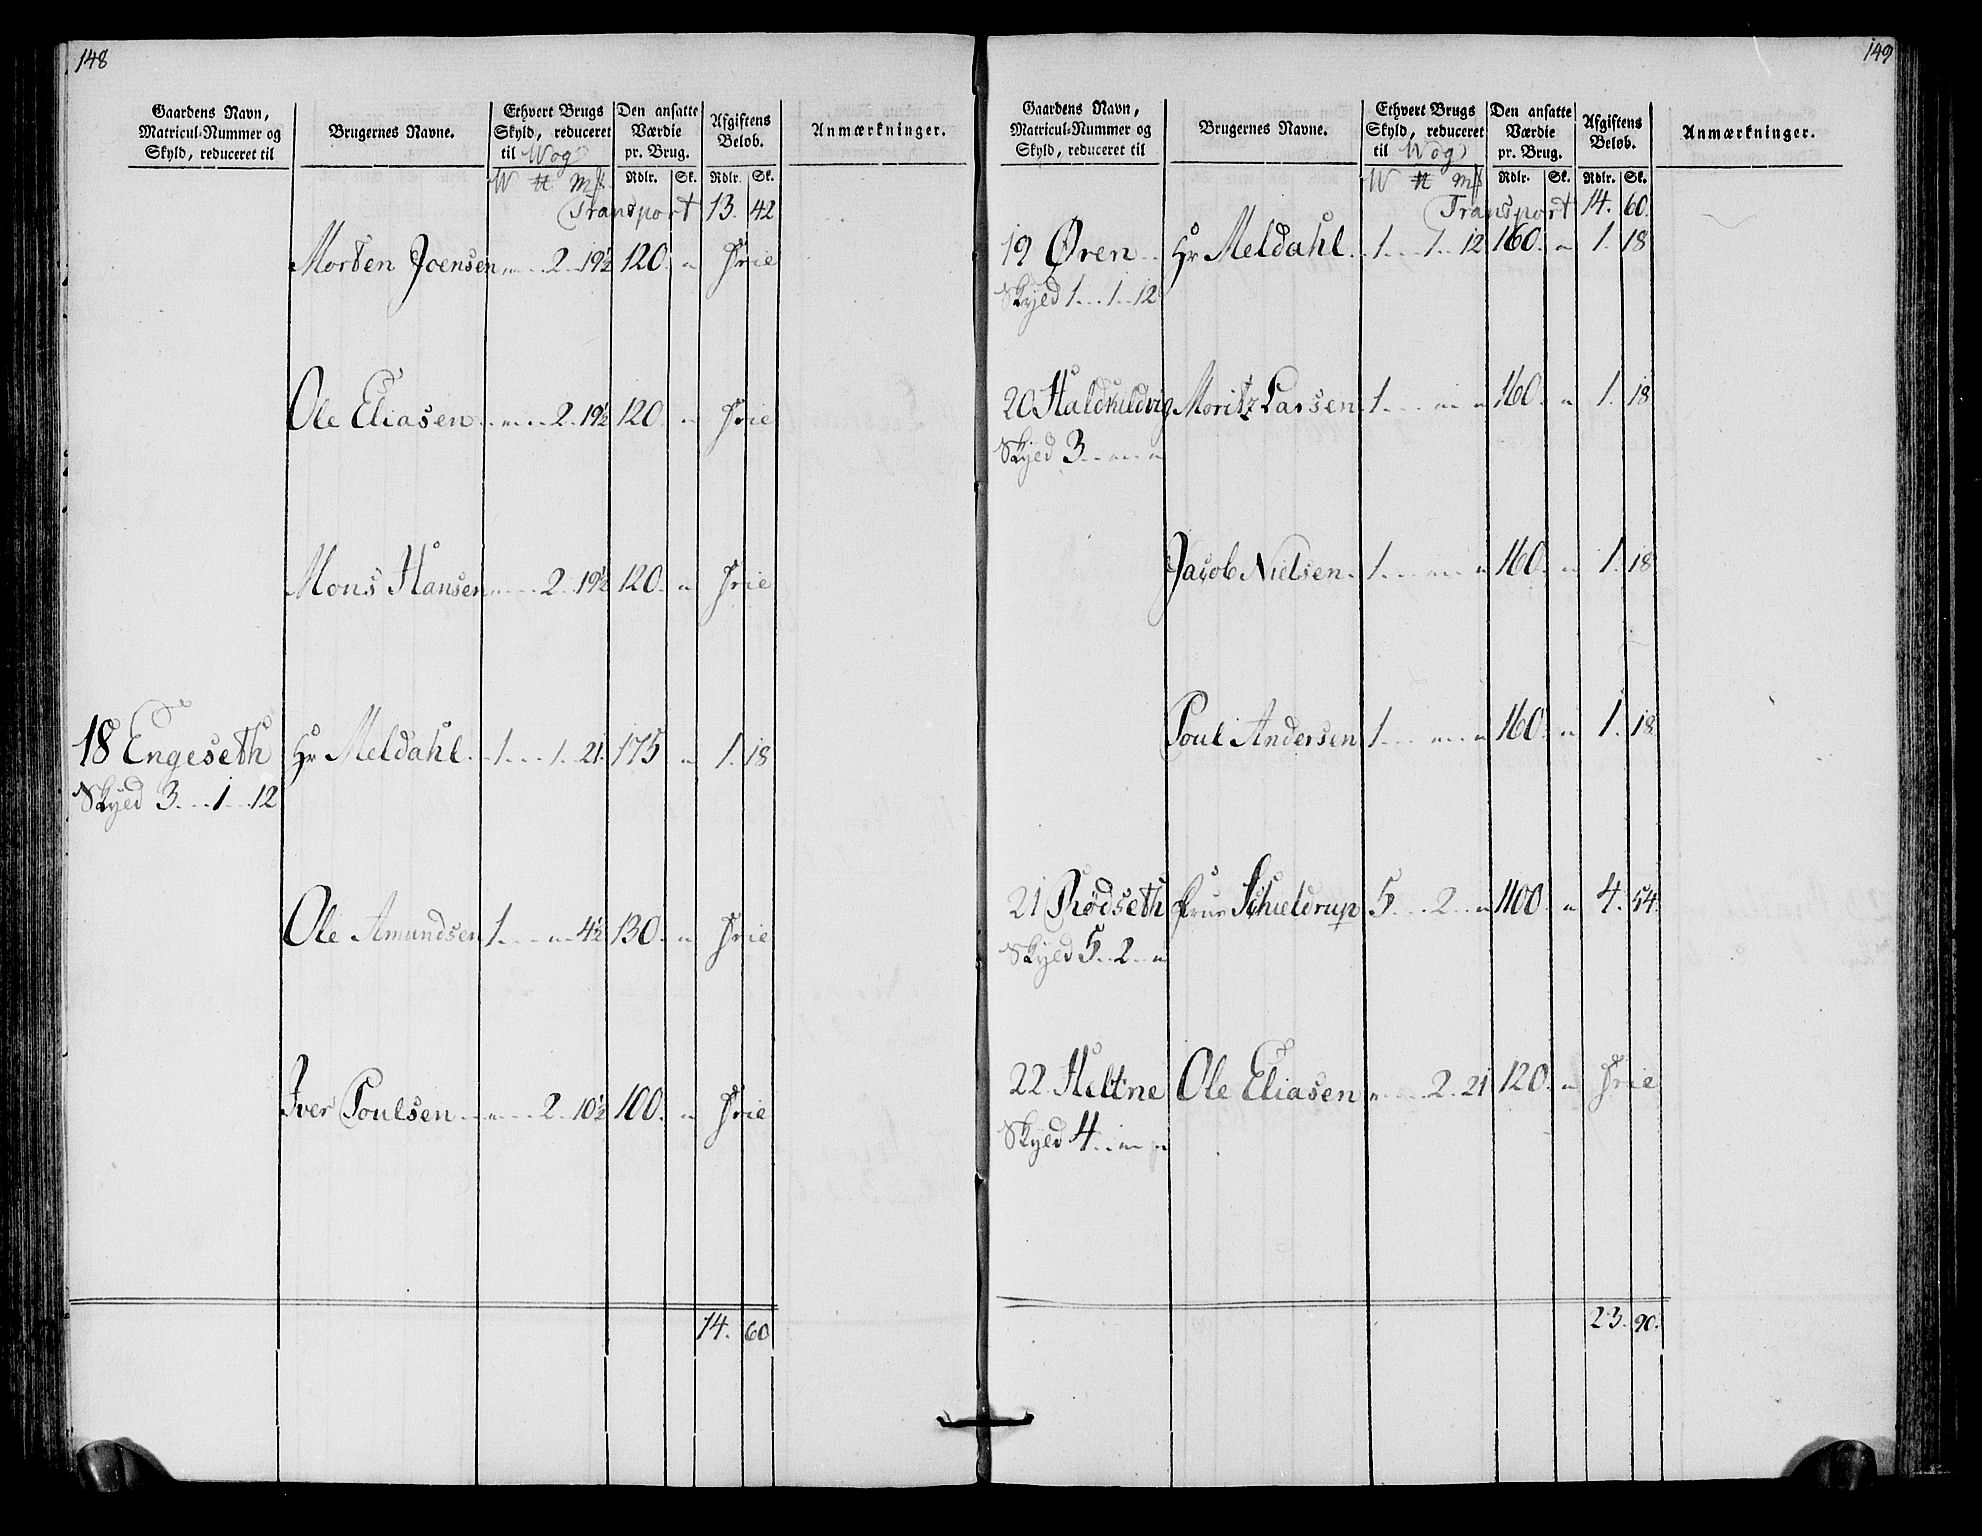 148
Gaardens Navn, Matricul-Nummer og Skyld, reduceret til | Brugernes Navne. | Ethvert Brugs Skyld, reduceret til Wog | Den ansatte Værdie pr. Brug. | Afgiftens Beløb. | Anmærkninger.
W ℔ Mk | Rdlr. Sk. | Rdlr. Sk.
Transport 13. 42
Morten Joensen „ 2 19½ 120 „ Frie
Ole Eliasen „ 2 19½ 120 „ Frie
Mons Hansen „ 2 19½ 120 „ Frie
18 Engeseth Hr Meldahl 1 1 21 175 „ 1. 18
Skyld 3 1 12
Ole Amundsen 1 „ 4½ 130 „ Frie
Iver Poulsen „ 2 10½ 100 „ Frie
14. 60
149
Gaardens Navn, Matricul-Nummer og Skyld, reduceret til | Brugernes Navne. | Ethvert Brugs Skyld, reduceret til Wog | Den ansatte Værdie pr. Brug. | Afgiftens Beløb. | Anmærkninger.
W ℔ Mk | Rdlr. Sk. | Rdlr. Sk.
Transport 14. 60.
19 Øren Hr Meldahl 1 1 12 160 „ 1. 18
Skyld 1 1 12
20 Haldkuldvig Moritz Larsen 1 „ „ 160 „ 1. 18
Skyld 3 „ „
Jacob Nielsen 1 „ „ 160 „ 1. 18
Poul Andersen 1 „ „ 160 „ 1. 18
21 Rødseth Frue Schieldrup 5 2 „ 1100 „ 4. 54.
Skyld 5 2 „
22 Heltne Ole Eliasen „ 2 21 120 „ Frie
Skyld 4 „ „
23. 90.